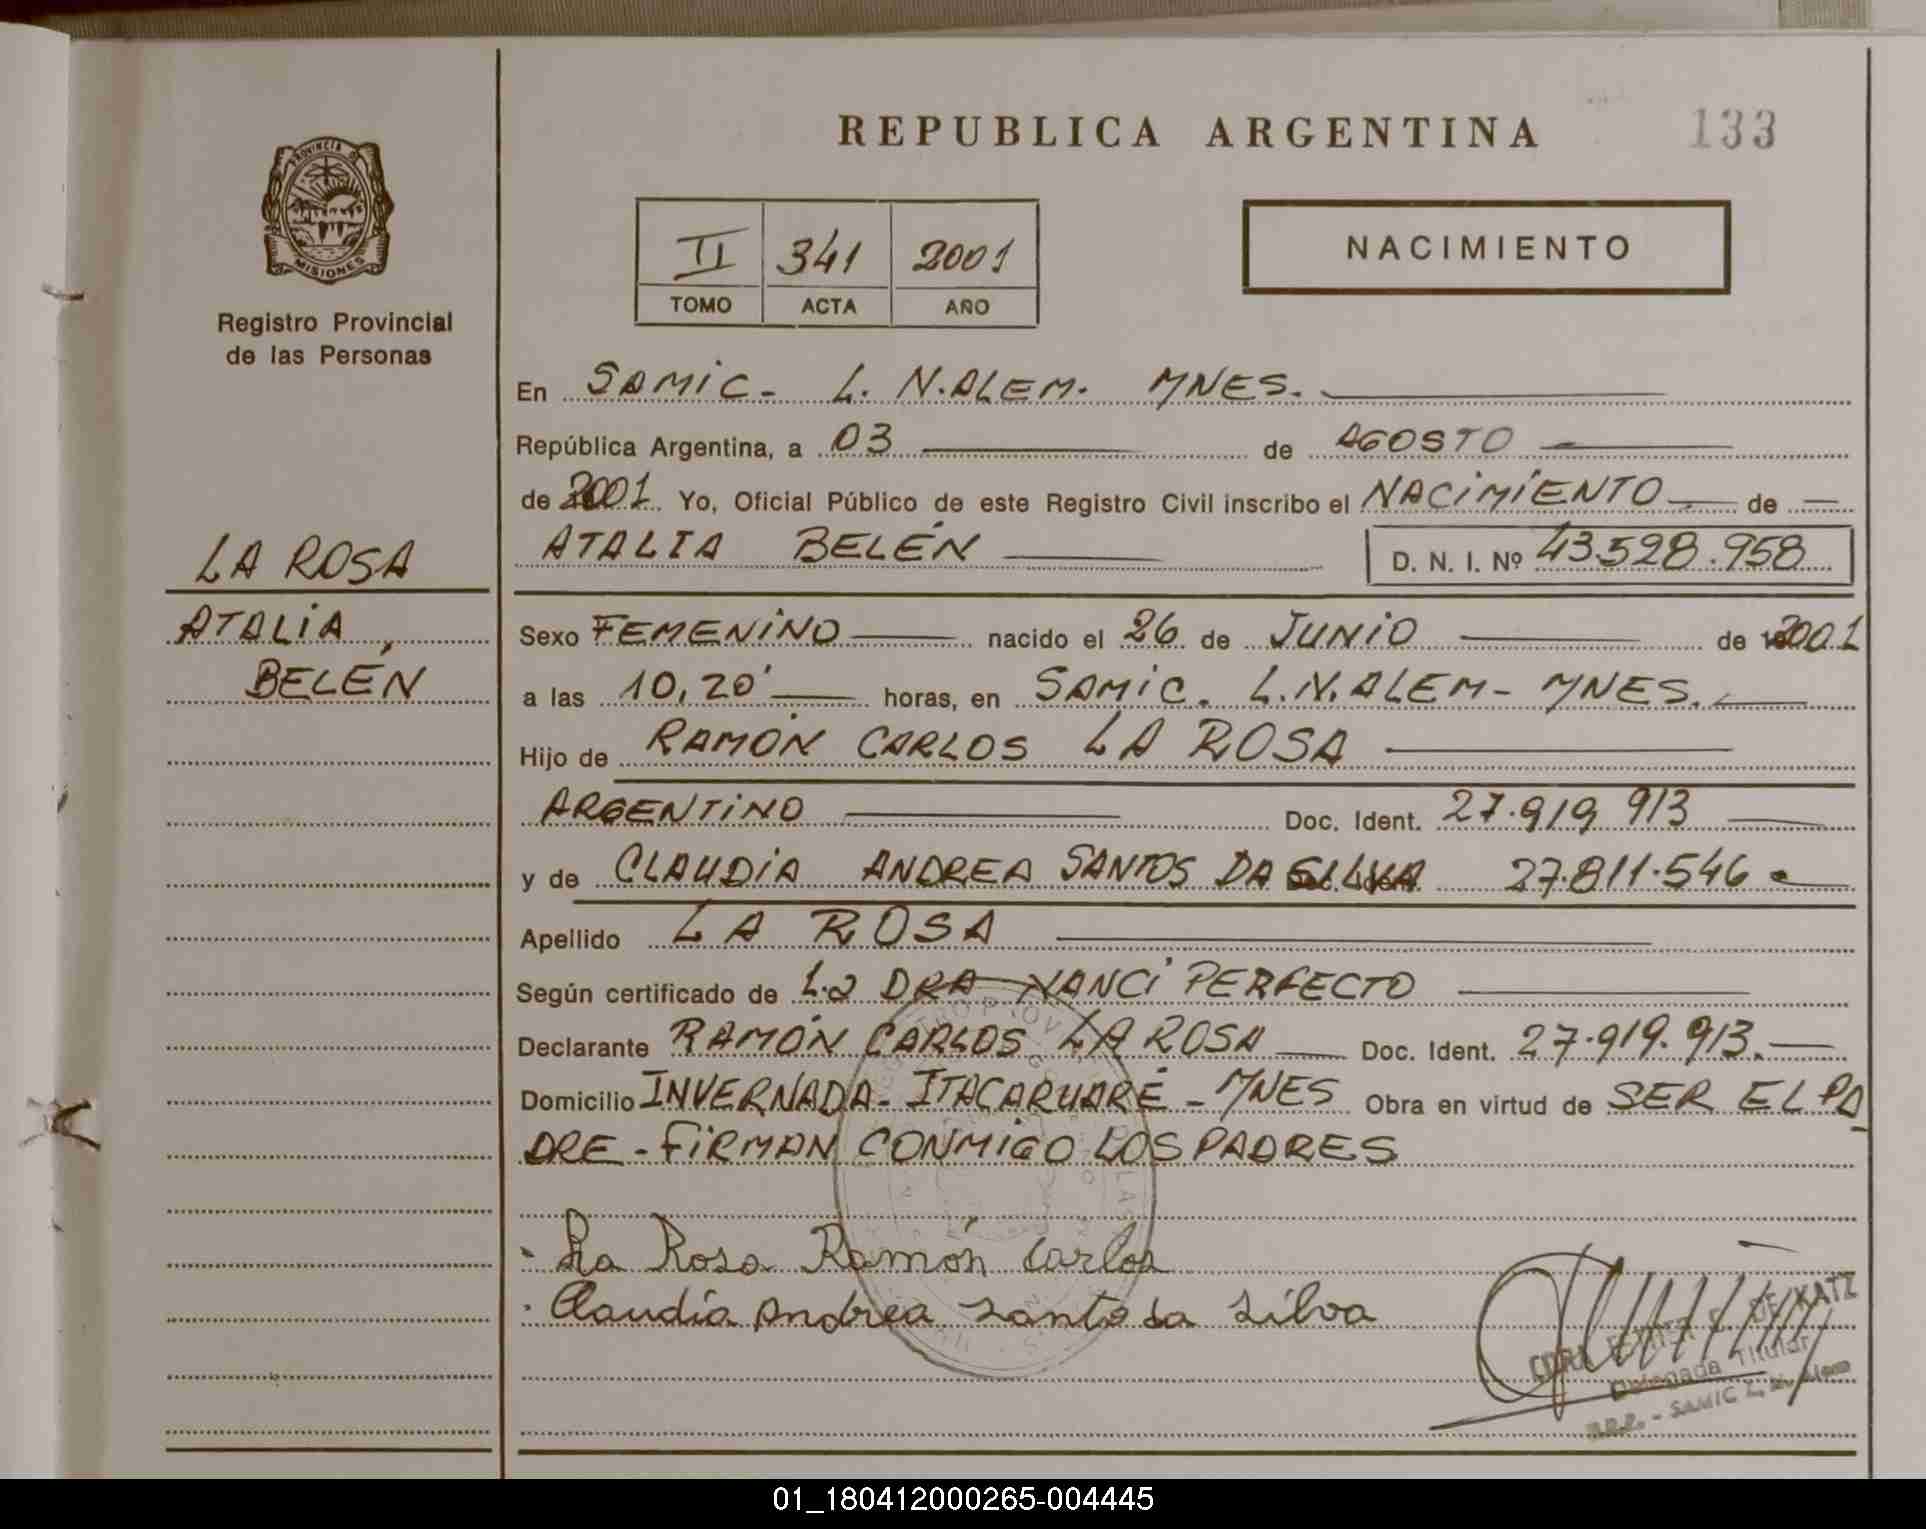 REPUBLICA ARGENTINA
133
PROVINCIA DE
MISIONES
Registro Provincial
de las Personas
II 341 2001
TOMO ACTA AÑO
NACIMIENTO
LA ROSA
ATALIA
BELÉN
En SAMIC - L. N. ALEM. MNES.
República Argentina, a 03 de AGOSTO
de 2001 Yo, Oficial Público de este Registro Civil inscribo el NACIMIENTO de
ATALIA BELÉN D. N. I. Nº 43.528.958
Sexo FEMENINO nacido el 26 de JUNIO de 2001
a las 10,20' horas, en SAMIC. L.N. ALEM - MNES.
Hijo de RAMÓN CARLOS LA ROSA
ARGENTINO Doc. Ident. 27.919 913
y de CLAUDIA ANDREA SANTOS DA SILVA 27.811.546
Apellido LA ROSA
Según certificado de La DRA NANCI PERFECTO
Declarante RAMÓN CARLOS LA ROSA Doc. Ident. 27.919.913.
Domicilio INVERNADA - ITACARUARÉ - MNES Obra en virtud de SER EL PA
DRE - FIRMAN CONMIGO LOS PADRES
La Rosa Ramón Carlos
Claudia Andrea Santo da Silva
DE KATZ
Delegada Titular
SAMIC L. N. Alem
01_180412000265-004445